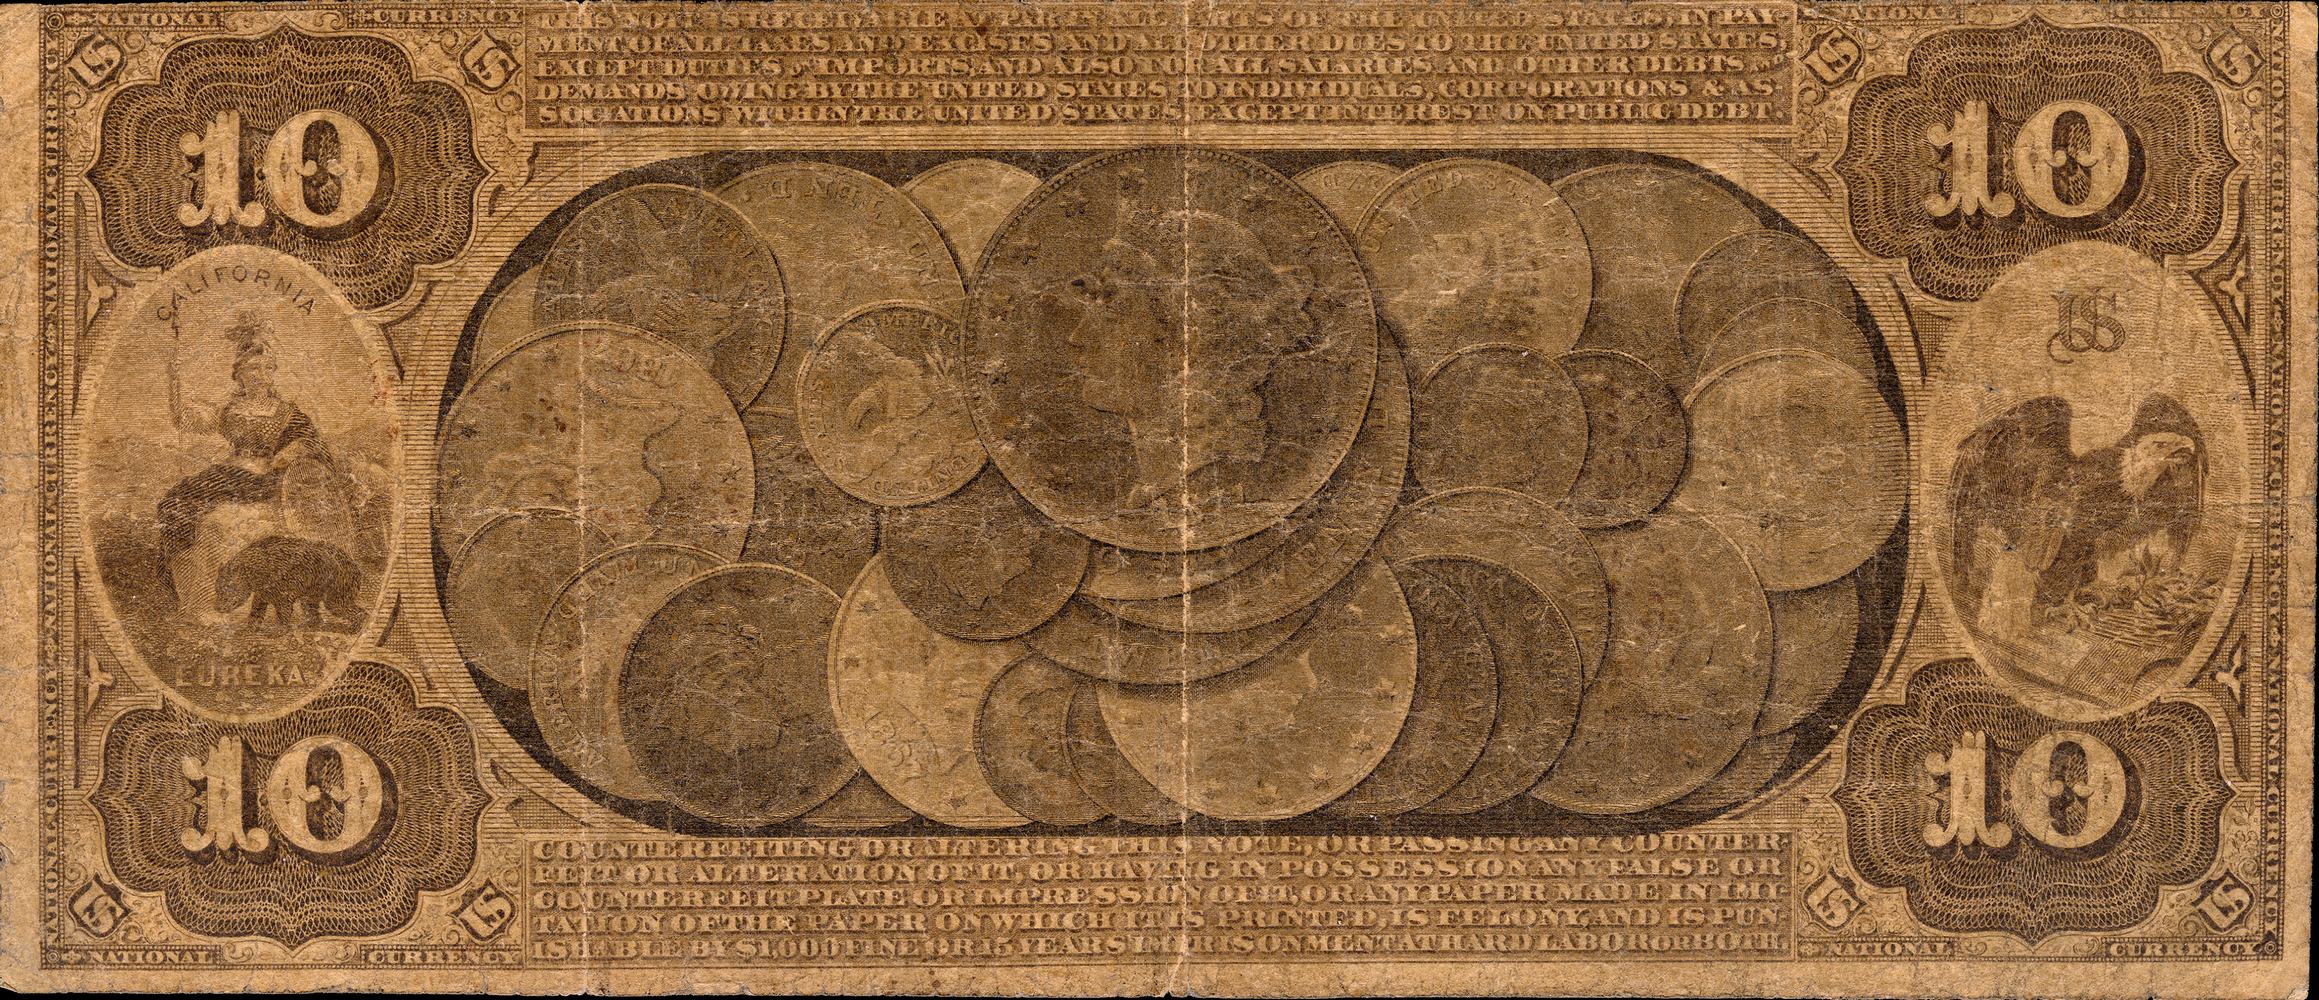 NATIONAL CURRENCY
THIS NOTE IS RECEIVABLE AT PAR IN ALL PARTS OF THE UNITED STATES, IN PAY-
MENT OF ALL TAXES AND EXCISES AND ALL OTHER DUES TO THE UNITED STATES,
EXCEPT DUTIES ON IMPORTS, AND ALSO FOR ALL SALARIES AND OTHER DEBTS AND
DEMANDS OWING BY THE UNITED STATES TO INDIVIDUALS, CORPORATIONS & AS-
SOCIATIONS WITHIN THE UNITED STATES EXCEPT INTEREST ON PUBLIC DEBT
NATIONAL CURRENCY
US
US
US
US
10
10
CALIFORNIA
US
AMERICA
UNITED STATES
1881
EUREKA
1887
10
10
US
US
US
US
COUNTERFEITING OR ALTERING THIS NOTE, OR PASSING ANY COUNTER-
FEIT OR ALTERATION OF IT OR HAVING IN POSSESSION ANY FALSE OR
COUNTERFEIT PLATE OR IMPRESSION OF IT, OR ANY PAPER MADE IN IMI-
TATION OF THE PAPER ON WHICH IT IS PRINTED, IS FELONY, AND IS PUN-
ISHABLE BY $1,000 FINE OR 15 YEARS IMPRISONMENT AT HARD LABOR OR BOTH.
NATIONAL CURRENCY
NATIONAL CURRENCY